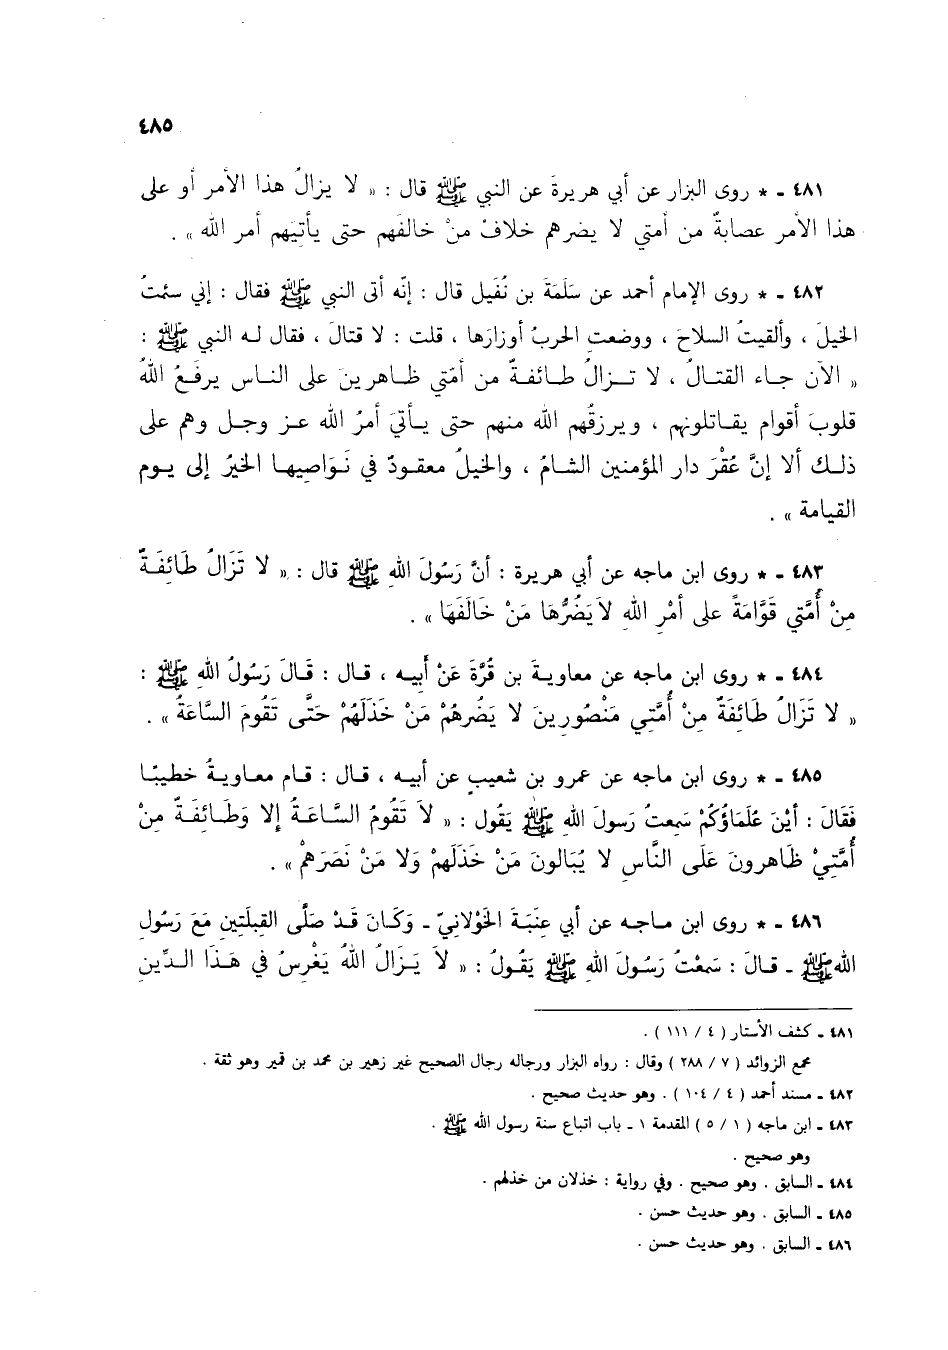 ٤٨٥
٤٨١ ـ * روى البزار عن أبي هريرةَ عن النبي ﷺ قال : « لا يزالُ هذا الأمر أو على
هذا الأمر عصابةٌ من أمتي لا يضرهم خلافُ منْ خالفَهم حتى يأتيَهم أمر الله » .
٤٨٢ ـ * روى الإمام أحمد عن سَلَمَةَ بن نُفَيل قال : إنّه أتى النبي ﷺ فقال : إني سئمتُ
الخيلَ ، وألقيتُ السلاحَ ، ووضعتِ الحربُ أوزارَها ، قلت : لا قتالَ ، فقال له النبي ﷺ :
« الآن جاء القتالُ ، لا تزالُ طائفةٌ من أمّتي ظاهرينَ على الناس يرفَعُ اللهُ
قلوبَ أقوام يقاتلونهم ، ويرزقُهم الله منهم حتى يأتيَ أمرُ الله عز وجل وهم على
ذلك ألا إنَّ عُقْرَ دار المؤمنين الشامُ ، والخيلُ معقودٌ في نَوَاصيها الخيرُ إلى يوم
القيامة » .
٤٨٣ ـ * روى ابن ماجه عن أبي هريرة : أنَّ رَسُولَ اللهِ ﷺ قال : « لا تَزَالُ طَائِفَةٌ
مِنْ أُمَّتي قَوَّامَةً على أمْرِ اللهِ لاَ يَضُرُّهَا مَنْ خَالَفَهَا » .
٤٨٤ ـ * روى ابن ماجه عن معاويةَ بن قُرَّةَ عَنْ أبيه ، قال : قَالَ رَسُولُ اللهِ ﷺ :
« لا تَزَالُ طَائِفَةٌ مِنْ أُمَّتي مَنْصُورِينَ لا يَضُرهُمْ مَنْ خَذَلَهُمْ حَتَّى تَقُومَ السَّاعَةُ » .
٤٨٥ ـ * روى ابن ماجه عن عمرو بن شعيبٍ عن أبيه ، قال : قام معاويةُ خطيبًا
فَقَالَ : أيْنَ عُلَمَاؤُكُمْ سَمِعتُ رَسولَ اللهِ ﷺ يَقُول : « لاَ تَقُومُ السَّاعَةُ إلا وَطَائِفَةٌ مِنْ
أُمَّتِيْ ظَاهرونَ عَلَى النَّاسِ لا يُبَالونَ مَنْ خَذَلَهمْ وَلا مَنْ نَصَرَهمْ » .
٤٨٦ ـ * روى ابن ماجه عن أبي عِنَبَةَ الخَوْلانيّ ـ وَكَانَ قَدْ صَلَّى القبلَتينِ مَعَ رَسُولِ
اللهِ ﷺ ـ قالَ : سَمعْتُ رَسُولَ اللهِ ﷺ يَقُولُ : « لاَ يَزَالُ اللهُ يَغْرسُ في هَذَا الدِّينِ
٤٨١ ـ كشف الأستار ( ٤ / ١١١ ) .
مجمع الزوائد ( ٧ / ٢٨٨ ) وقال : رواه البزار ورجاله رجال الصحيح غير زهير بن محمد بن قمير وهو ثقة .
٤٨٢ ـ مسند أحمد ( ٤ / ١٠٤ ) . وهو حديث صحيح .
٤٨٣ ـ ابن ماجه ( ١ / ٥ ) المقدمة ١ ـ باب اتباع سنة رسول الله ﷺ .
وهو صحيح .
٤٨٤ ـ السابق . وهو صحيح . وفي رواية : خذلان من خذلهم .
٤٨٥ ـ السابق . وهو حديث حسن .
٤٨٦ ـ السابق . وهو حديث حسن .